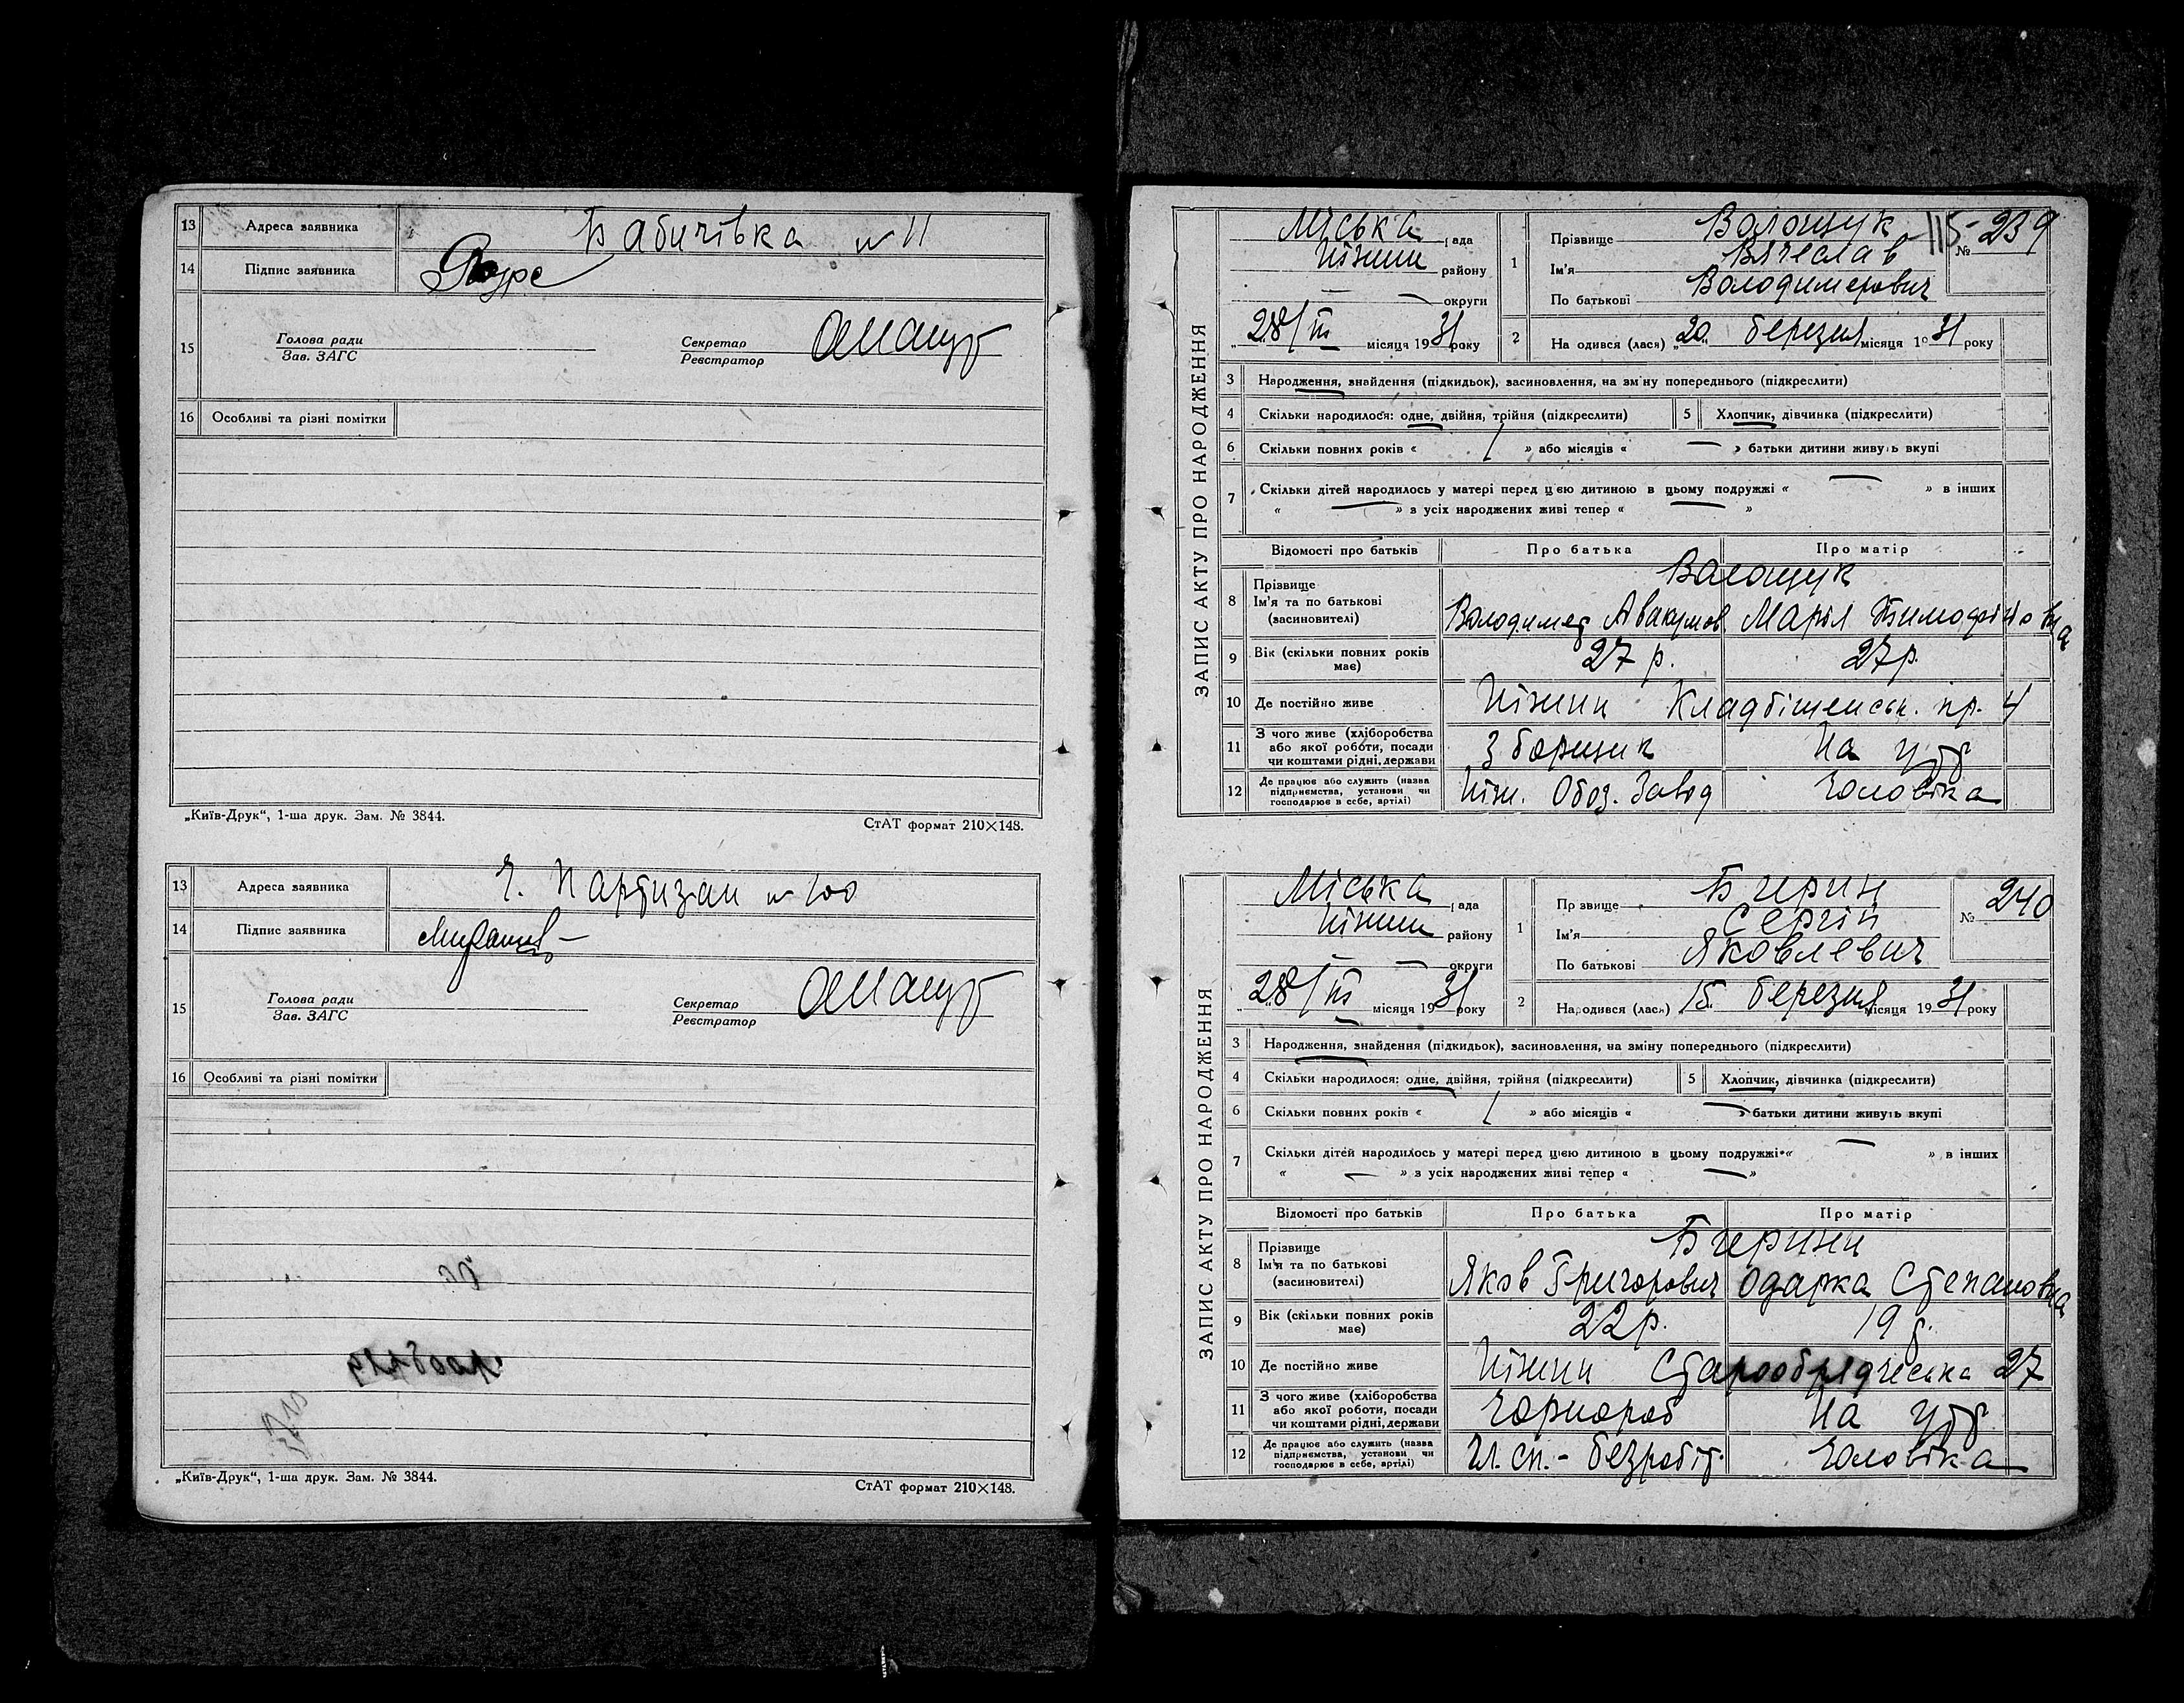 13 Адреса заявника Бабичівка № 11
14 Підпис заявника
15 Голова ради
Зав. ЗАГС
Секретар
Реєстратор
16 Особливі та різні помітки
„Київ-Друк“, 1-ша друк. Зам. № 3844.
СтАТ формат 210×148.
13 Адреса заявника Ч. Партизан № 100
14 Підпис заявника
15 Голова ради
Зав. ЗАГС
Секретар
Реєстратор
16 Особливі та різні помітки
„Київ-Друк“, 1-ша друк. Зам. № 3844.
СтАТ формат 210×148.
ЗАПИС АКТУ ПРО НАРОДЖЕННЯ
Міська рада
Ніжин району
— — округи
„28/III місяця 1931 року
1 Прізвище Волощук
Ім'я Вячеслав
По батькові Володимерович
115 № 239
2 На одився (лася) „20„ березня місяця 1931 року
3 Народження, знайдення (підкидьок), засиновлення, на зміну попереднього (підкреслити)
4 Скільки народилося: одне, двійня, трійня (підкреслити)
5 Хлопчик, дівчинка (підкреслити)
6 Скільки повних років « / » або місяців « — » батьки дитини живуть вкупі
7 Скільки дітей народилось у матері перед цією дитиною в цьому подружжі « — » в інших
« — » з усіх народжених живі тепер « — »
Відомості про батьків Про батька Про матір
8 Прізвище
Ім'я та по батькові
(засиновителі)
Волощук
Володимер Авакумов Марія Тимофіївна
9 Вік (скільки повних років має) 27 р. 27 р.
10 Де постійно живе Ніжин Кладбішенськ. пр. 4
11 З чого живе (хліборобства
або якої роботи, посади
чи коштами рідні, держави
Зборщик На утр
12 Де працює або служить (назва
підприємства, установи чи
господарює в себе, артілі)
Ніжн. Обоз. Завод Чоловіка
ЗАПИС АКТУ ПРО НАРОДЖЕННЯ
Міська рада
Ніжин району
— — округи
„28/III місяця 1931 року
1 Прзвище Бгерин
Ім'я Сергій
По батькові Яковлевич
№ 240
2 Народився (лася) „15„ березня місяця 1931 року
3 Народження, знайдення (підкидьок), засиновлення, на зміну попереднього (підкреслити)
4 Скільки народилося: одне, двійня, трійня (підкреслити)
5 Хлопчик, дівчинка (підкреслити)
6 Скільки повних років « / » або місяців « — » батьки дитини живуть вкупі
7 Скільки дітей народилось у матері перед цією дитиною в цьому подружжі « — » в інших
« — » з усіх народжених живі тепер « — »
Відомості про батьків Про батька Про матір
8 Прізвище
Ім'я та по батькові
(засиновителі)
Бгерини
Яков Григорович Одарка Степановна
9 Вік (скільки повних років має) 22 р. 19 р.
10 Де постійно живе Ніжин Старообрядчеська 27
11 З чого живе (хліборобства
або якої роботи, посади
чи коштами рідні, держави
Чорнороб На утр
12 Де працює або служить (назва
підприємства, установи чи
господарює в себе, артілі)
Чл. сп. - безробіт. Чоловіка